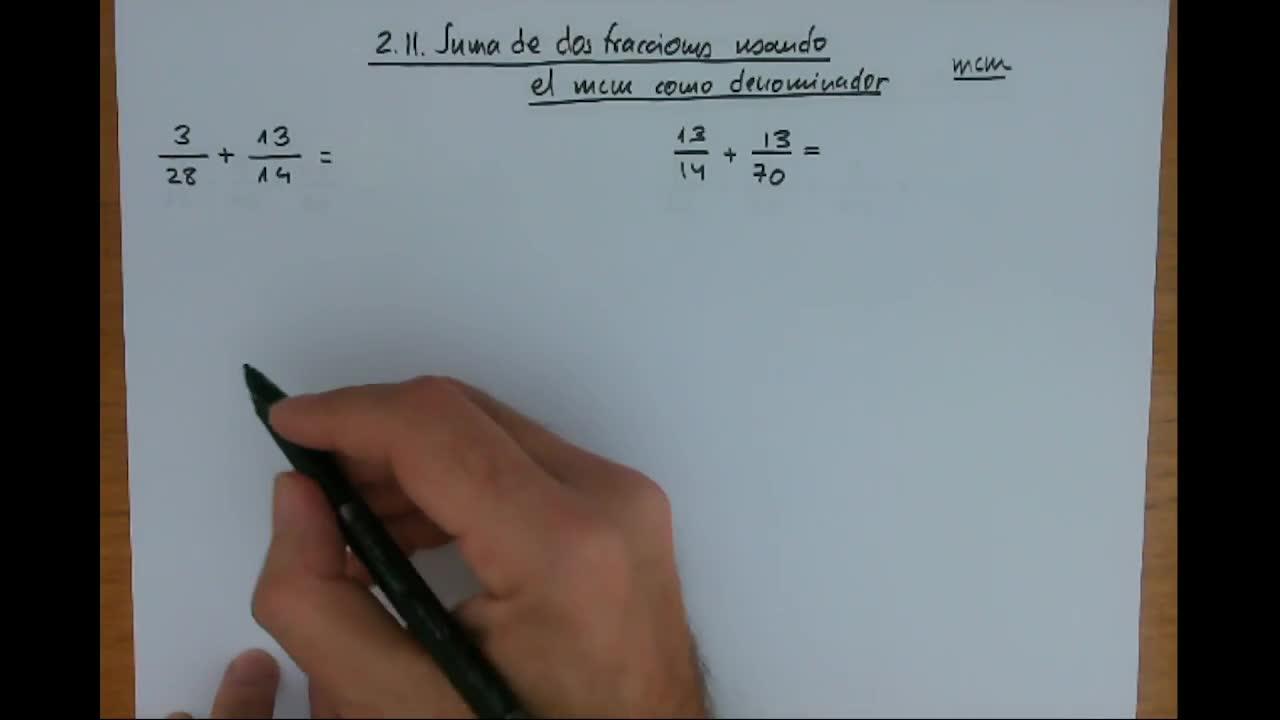 2.11. Suma de dos fracciones usando
el mcm como denominador
mcm
3/28 + 13/14 =
13/14 + 13/70 =